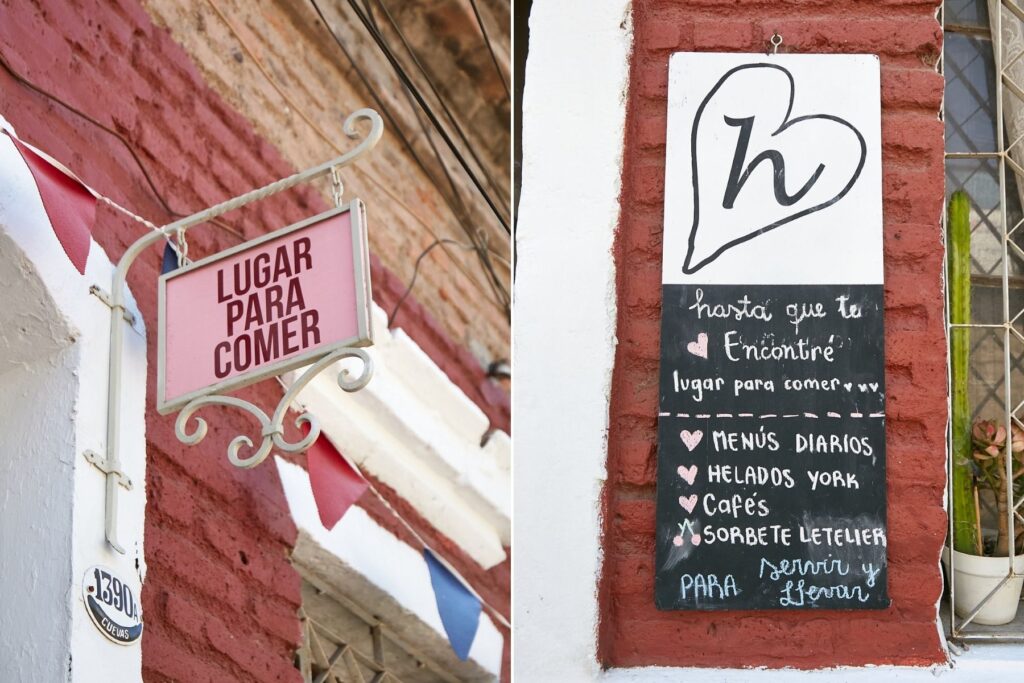 LUGAR
PARA
COMER
1390A
CUEVAS
h
hasta que te
Encontré
lugar para comer
MENÚS DIARIOS
HELADOS YORK
Cafés
SORBETE LETELIER
PARA servir y
llevar